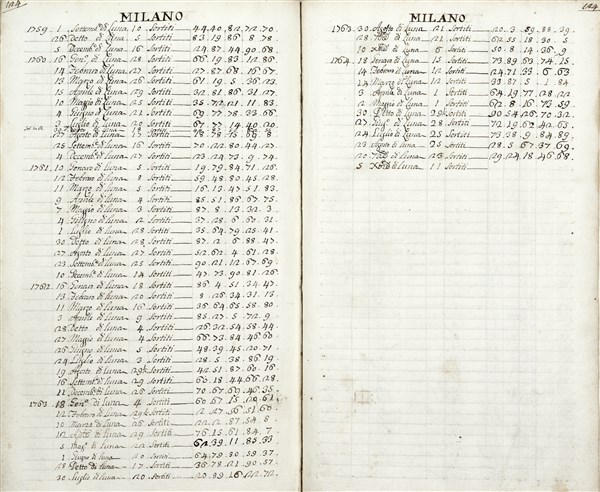 124
MILANO
1759. 1 Settemb.e di Luna 10 Sortiti 44.40.82.72.70.
26 Detto di Luna 5 Sortiti 83.19.86.8.78.
5 Decemb.e di Luna 16 Sortiti 24.87.44.90.68.
1760. 16 Gen.o di Luna 28 Sortiti 66.19.83.12.86.
14 Febraro di Luna 27 Sortiti 27.87.68.16.67.
13 Marzo di Luna 26 Sortiti 61.49.5.36.73.
15 Aprile di Luna 29 Sortiti 32.81.86.31.27.
10 Maggio di Luna 25 Sortiti 35.72.21.11.83.
4 Giugno di Luna 21 Sortiti 69.77.78.33.66.
Luglio di Luna 20 Sortiti 67.27.14.40.20.
Agosto di Luna Sortiti
25 Settemb.e di Luna 16 Sortiti 70.22.80.44.27.
4 Decemb.e di Luna 27 Sortiti 23.24.73.9.74.
1761. 10 Genaro di Luna 5 Sortiti 19.79.84.71.26.
12 Febraro di Luna 8 Sortiti 59.48.80.45.28.
11 Marzo di Luna 5 Sortiti 16.13.47.51.83.
9 Aprile di Luna 4 Sortiti 85.51.86.67.75.
7 Maggio di Luna 3 Sortiti 87.8.13.32.3.
4 Giugno di Luna 2 Sortiti 37.28.6.67.31.
1 Luglio di Luna 28 Sortiti 35.64.79.25.41.
30 Detto di Luna 28 Sortiti 87.12.6.88.47.
27 Agosto di Luna 27 Sortiti 52.62.4.61.28.
23 Settemb.e di Luna 25 Sortiti 90.21.12.67.69.
10 Decemb.e di Luna 14 Sortiti 47.73.90.81.26.
1762. 16 Genaro di Luna 18 Sortiti 86.4.51.34.47.
13 Febraro di Luna 20 Sortiti 8.26.34.31.13.
11 Marzo di Luna 16 Sortiti 36.64.65.58.80.
3 Aprile di Luna 9 Sortiti 85.27.5.72.9.
28 Detto di Luna 4 Sortiti 26.32.54.58.44.
27 Maggio di Luna 4 Sortiti 66.73.84.46.60.
26 Giugno di Luna 5 Sortiti 48.39.45.20.71.
24 Luglio di Luna 3 Sortiti 28.5.38.86.19.
19 Agosto di Luna 29 Sortiti 42.51.87.60.16.
16 Settemb.e di Luna 29 Sortiti 60.18.44.66.28.
11 Decemb.e di Luna 26 Sortiti 70.67.60.46.35.
1763. 18 Gen.o di Luna 4 Sortiti 60.67.15.20.61.
12 Febraro di Luna 29 Sortiti 2.27.56.51.60.
10 Marzo di Luna 26 Sortiti 22.12.87.54.8.
Aprile di Luna 29 Sortiti 76.15.61.84.7.
5 Mag.o di Luna 22 Sortiti 62.39.11.85.33.
1 Giugno di Luna 20 Sortiti 64.79.80.59.37.
28 Detto di Luna 17 Sortiti 36.78.21.90.57.
30 Luglio di Luna 20 Sortiti 20.89.16.22.72.
124
MILANO
1763. 30 Agosto di Luna 21 Sortiti 20.3.59.88.39.
28 7bre di Luna 21 Sortiti 62.55.18.30.5.
10 Xbre di Luna 6 Sortiti 50.8.14.36.9.
1764. 18 Genaro di Luna 15 Sortiti 73.89.63.74.15.
14 Febraro di Luna 12 Sortiti 24.71.33.6.63.
14 Marzo di Luna 12 Sortiti 33.87.5.1.84.
3 Aprile di Luna 1 Sortiti 64.19.77.28.22.
2 Maggio di Luna 1 Sortiti 62.8.16.73.59.
30 Detto di Luna 29 Sortiti 30.54.26.70.32.
di Luna 28 Sortiti 72.19.62.42.63.
24 Luglio di Luna 25 Sortiti 73.38.9.84.89.
23 Agosto di Luna 25 Sortiti 28.5.67.37.69.
20 7bre di Luna 23 Sortiti 29.24.18.46.68.
5 Xbre di Luna 11 Sortiti